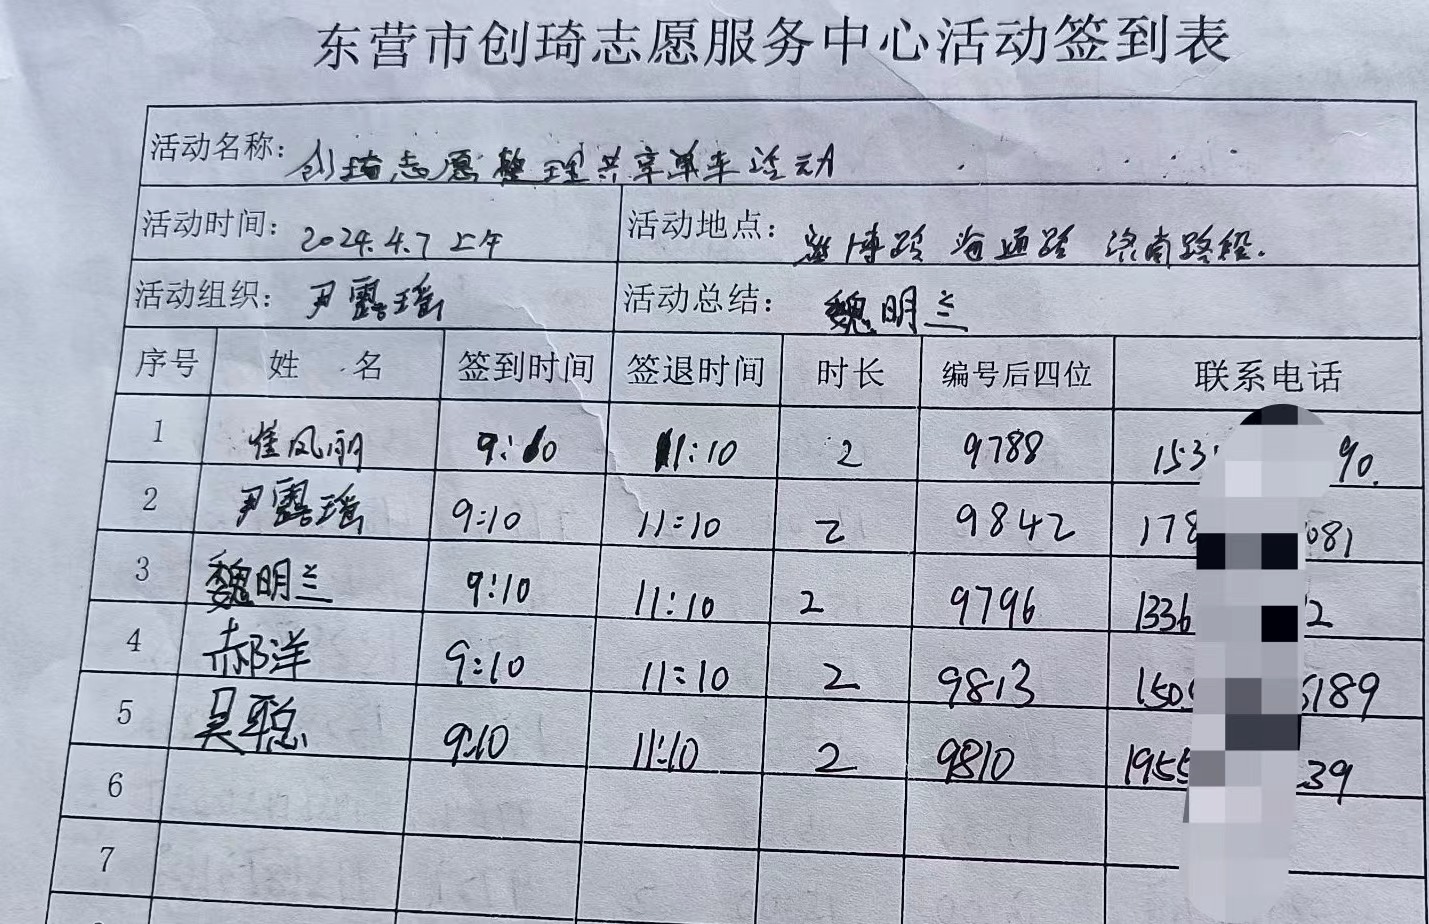 东营市创琦志愿服务中心活动签到表
活动名称: 创琦志愿整理共享单车活动
活动时间: 2024.4.7 上午 活动地点: 淄博路 海通路 济南路段.
活动组织: 尹露瑶 活动总结: 魏明兰
序号 姓 名 签到时间 签退时间 时长 编号后四位 联系电话
1 崔凤丽 9:10 11:10 2 9788 153 90.
2 尹露瑶 9:10 11:10 2 9842 178 081
3 魏明兰 9:10 11:10 2 9796 1336 2
4 郝洋 9:10 11:10 2 9813 150 189
5 吴聪 9:10 11:10 2 9810 1955 39
6
7